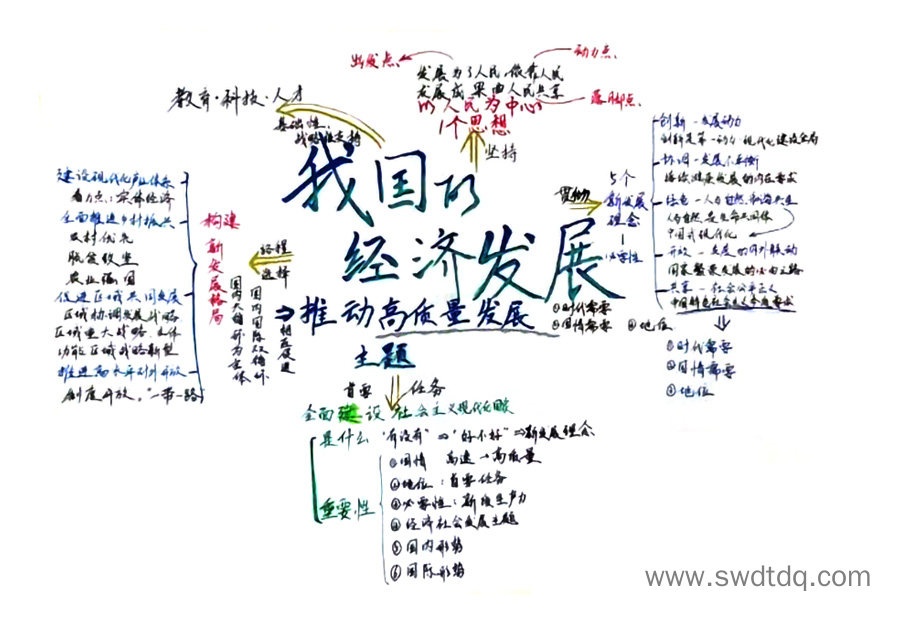 我国的
经济发展
推动高质量发展
主题
出发点
动力点
发展为了人民,依靠人民
发展成果由人民共享
以人民为中心
落脚点
1个思想
坚持
教育·科技·人才
基础性、
战略性支撑
贯彻
5个
新发展
理念
必要性
创新－发展动力
创新是第一动力 现代化建设全局
协调－发展不平衡
持续健康发展的内在要求
绿色－人与自然和谐共生
人与自然是生命共同体
中国式现代化
开放－发展的内外联动
国家繁荣发展的必由之路
共享－社会公平正义
中国特色社会主义本质要求
①时代需要
②国情需要
③地位
①时代需要
②国情需要
③地位
路径
选择
构建
新发展格局
国内大循环为主体
国内国际双循环
相互促进
建设现代化产业体系
着力点:实体经济
全面推进乡村振兴
农村优先
脱贫攻坚
农业强国
促进区域共同发展
区域协调发展战略
区域重大战略、主体
功能区域战略新型
推进高水平对外开放
制度开放,"一带一路"
首要 任务
全面建设社会主义现代化国家
是什么 "有没有"⇒"好不好"⇒新发展理念
重要性
①国情 高速→高质量
②地位:首要任务
③必要性:新质生产力
④经济社会发展主题
⑤国内形势
⑥国际形势
www.swdtdq.com